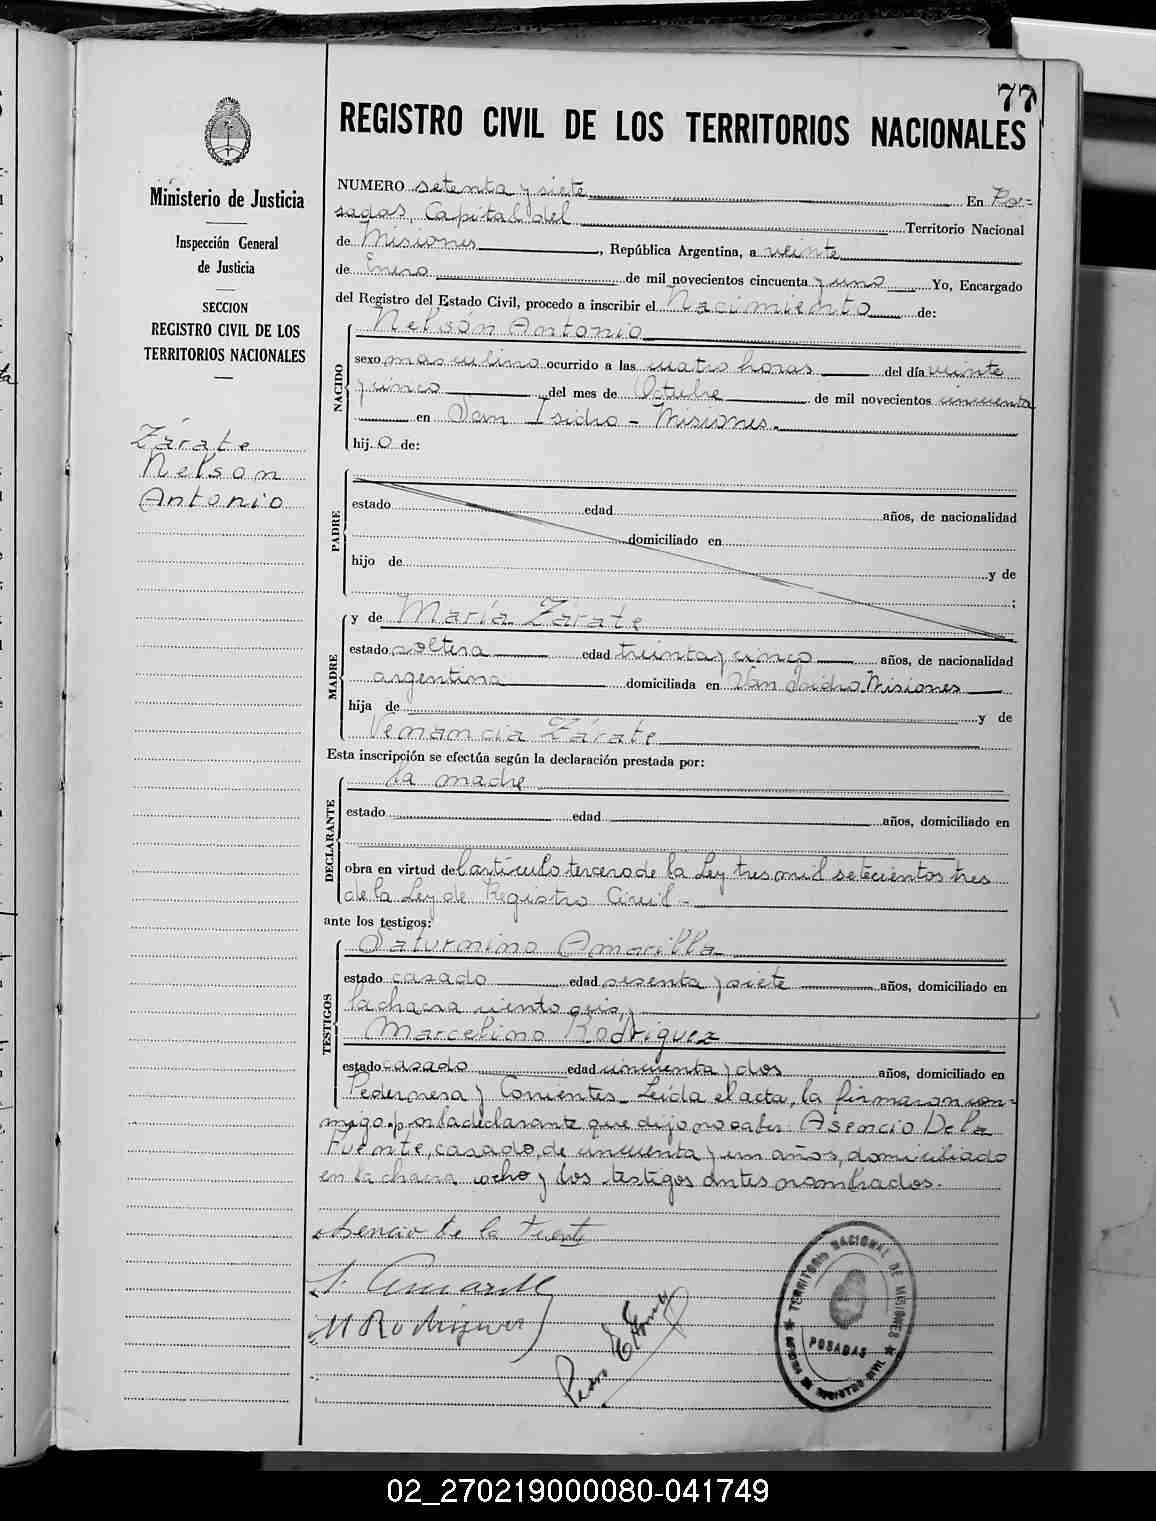 77
REGISTRO CIVIL DE LOS TERRITORIOS NACIONALES
Ministerio de Justicia
Inspección General
de Justicia
SECCION
REGISTRO CIVIL DE LOS
TERRITORIOS NACIONALES
Zárate
Nelson
Antonio
NUMERO setenta y siete En Po=
sadas, Capital del Territorio Nacional
de Misiones, República Argentina, a veinte
de Enero de mil novecientos cincuenta y uno Yo, Encargado
del Registro del Estado Civil, procedo a inscribir el Nacimiento de:
NACIDO
Nelsón Antonio
sexo masculino ocurrido a las cuatro horas del día veinte
y cinco del mes de Octubre de mil novecientos cincuenta
en San Isidro - Misiones.
hij o de:
PADRE
estado edad años, de nacionalidad
domiciliado en
hijo de y de
;
MADRE
y de María Zárate
estado soltera edad treinta y cinco años, de nacionalidad
argentina domiciliada en San Isidro. Misiones
hija de y de
Venancia Zárate
Esta inscripción se efectúa según la declaración prestada por:
DECLARANTE
la madre
estado edad años, domiciliado en
obra en virtud del artículo tercero de la Ley tres mil setecientos tres
de la Ley de Registro Civil -
ante los testigos:
TESTIGOS
Saturnino Amarilla
estado casado edad sesenta y siete años, domiciliado en
la chacra ciento seis, y
Marcelino Rodriguez
estado casado edad cincuenta y dos años, domiciliado en
Pedernera y Corrientes - Leída el acta, la firmaron con=
migo, por la declarante que dijo no saber Asencio De la
Fuente, casado, de cincuenta y un años, domiciliado
en la chacra ocho y los testigos antes nombrados.
Asencio de la Fuente
S. Amarill
M Rodriguez
TERRITORIO NACIONAL DE MISIONES
POSADAS
OFICINA DE REGISTRO CIVIL
02_270219000080-041749